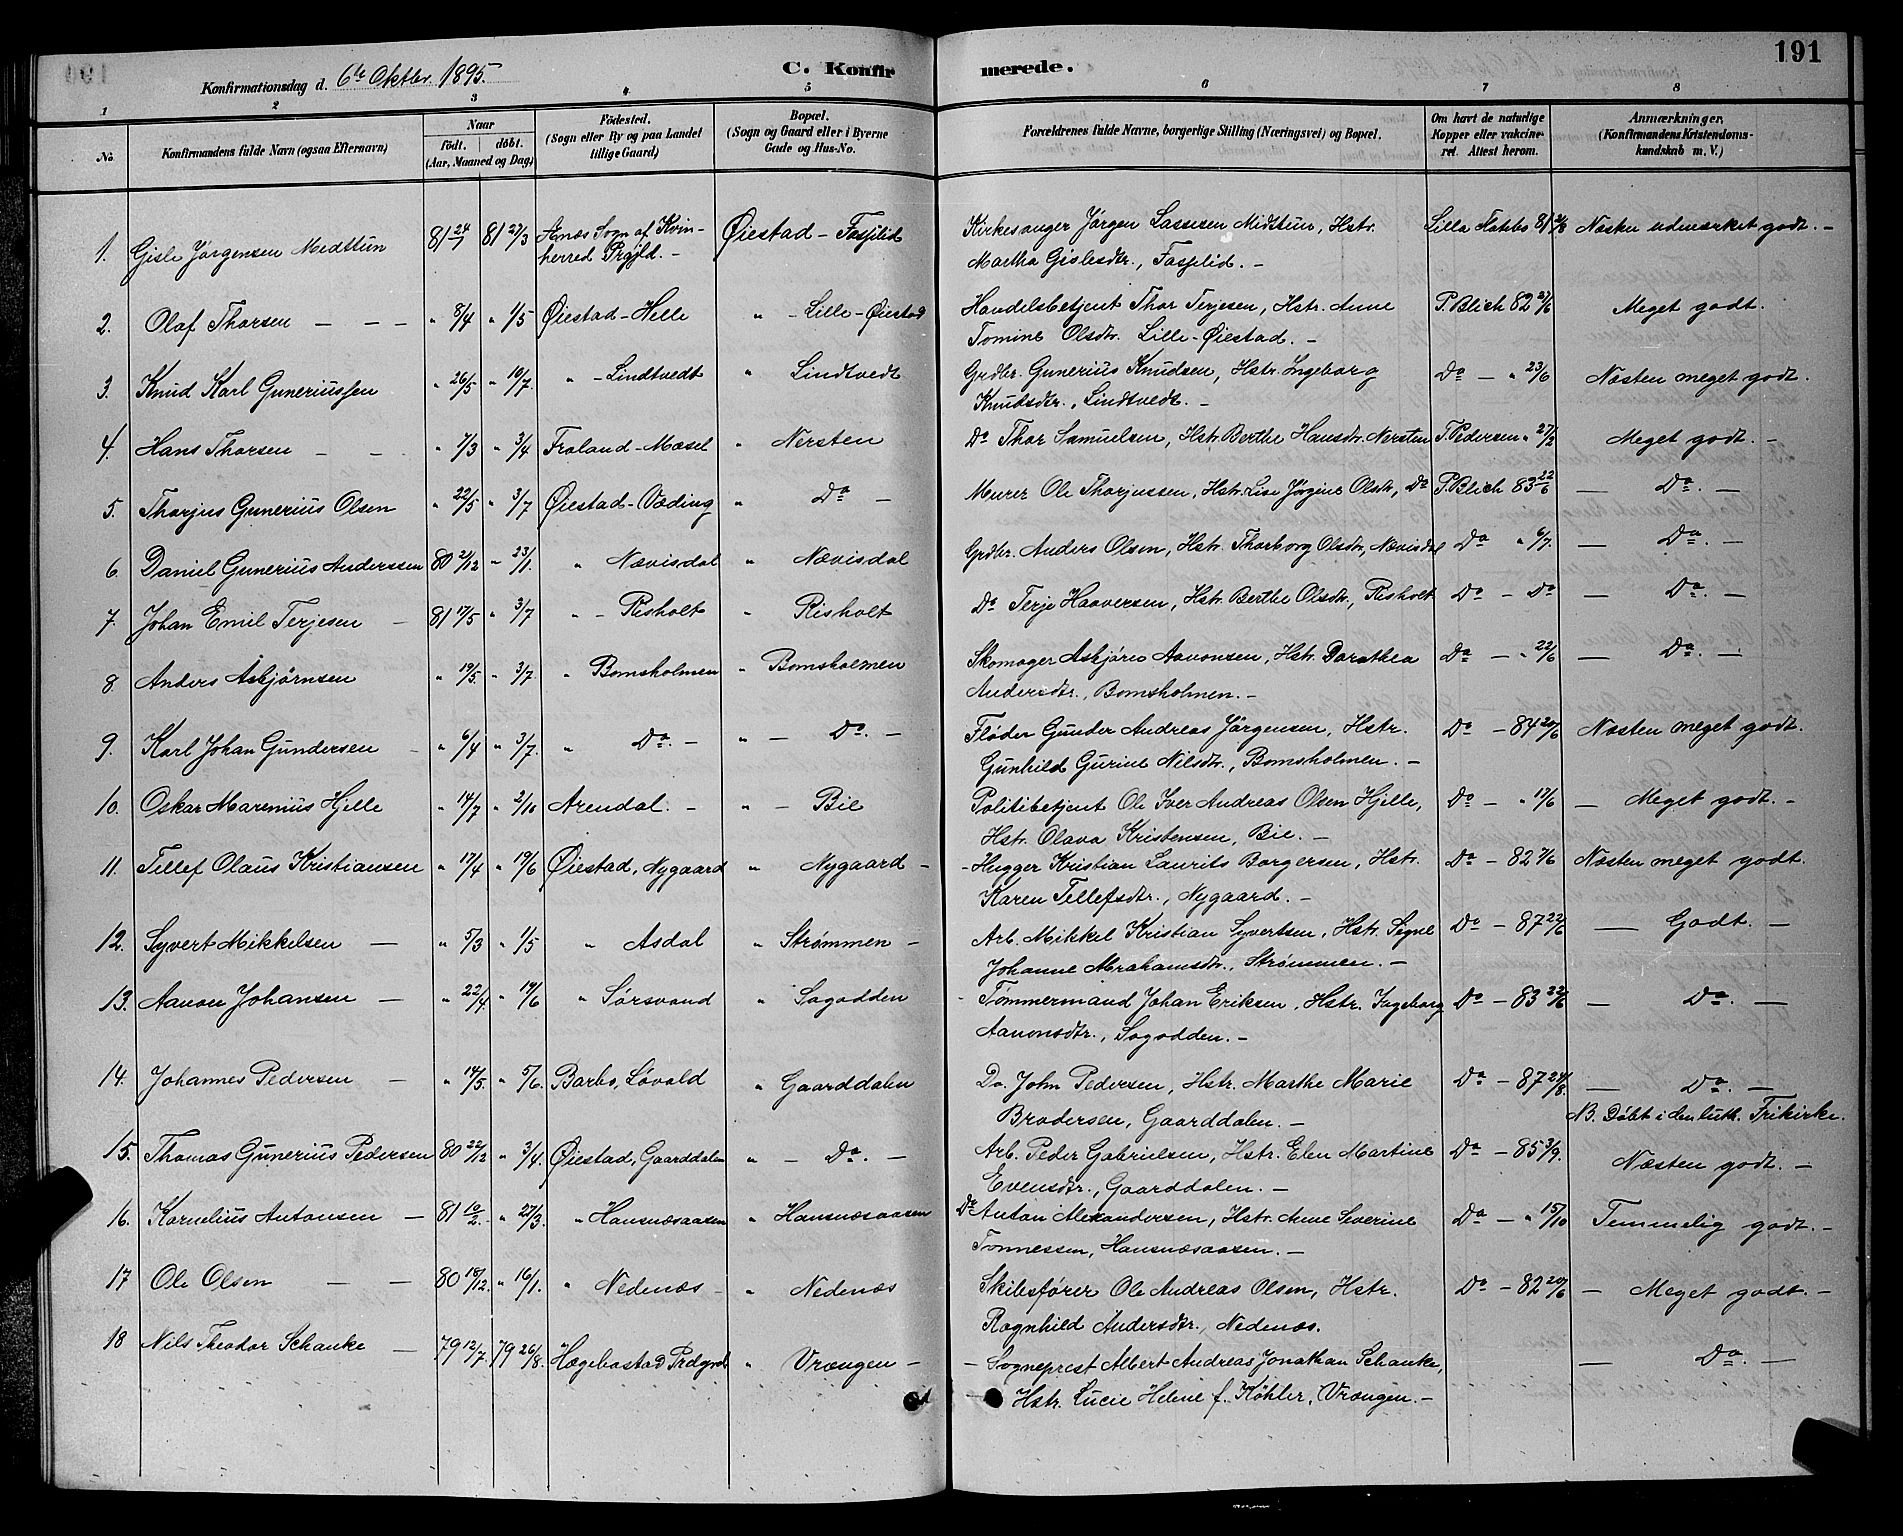 191
Konfirmationsdag d. 6te Oktbr. 1895.
C. Konfirmerede.
1 2 3 4 5 6 7 8
No.
Konfirmandens fulde Navn (ogsaa Efternavn)
Naar
født. døbt.
(Aar, Maaned og Dag)
Fødested.
(Sogn eller By og paa Landet
tillige Gaard)
Bopæl.
(Sogn og Gaard eller i Byerne
Gade og Hus-No.
Forældrenes fulde Navne, borgerlige Stilling (Næringsvei) og Bopæl.
Om havt de naturlige
Kopper eller vakcine-
ret. Attest herom.
Anmærkninger,
(Konfirmandens Kristendoms-
kundskab m. V.)
1. Gisle Jørgensen Medttun 81 24/1 81 27/3 Ænæs Sogn af Kvin- Øiestad - Fasjelid Kirkesanger Jørgen Lassesen Midttun, Hstr. Lilla 81 Næsten udmærket godt. -
herred Prgjld. - Martha Gislesdtr., Fasjelid. -
2. Olaf Thorsen - - - " 8/4 " 1/5 Øiestad - Helle " - Lille-Øiestad Handelsbetjent Thor Terjesen, Hstr. Anne P. Blich 82 27/6 Meget godt.
Tomine Olsdtr. Lille-Øiestad. -
3. Knud Karl Guneriussen " 26/5 " 10/7 " - Lindtvedt " Lindtvedt Grdbr. Gunerius Knudsen, Hstr. Ingeborg Do - " 23/6 Næsten meget godt.
Knudsdtr., Lindtvedt. -
4. Hans Thorsen - - " 7/3 " 3/4 Froland - Mæsel " Nersten Do Thor Samuelsen, Hstr. Berthe Hansdtr. Nersten T. Pedersen " 27/2 Meget godt. -
5. Thorjus Gunerius Olsen " 22/5 " 3/7 Øiestad - Væding " Do - Murer Ole Thorjussen, Hstr. Lise Jørgine Olsdtr, Do P. Blich 83 22/6 - Do. -
6. Daniel Gunerius Anderssen 80 21/12 " 23/1. " Nævisdal " Nævisdal Grdbr. Anders Olsen, Hstr. Thorborg Olsdtr, Nævisdal Do " 6/7. - Do. -
7. Johan Emil Terjesen - 81 17/5 " 3/7 " - Risholt " Risholt Do Terje Haaversen, Hstr. Berthe Olsdtr., Risholt Do - Do - Do. -
8. Anders Asbjørnsen " 19/5. " 3/7 " Bomsholmen " Bomsholmen Skomager Asbjørn Aavonsen, Hstr. Dorothea Do - " 22/6 - Do. -
Andersdtr., Bomsholmen. -
9. Karl Johan Gundersen - " 6/4 " 3/7. " Do. - " - Do. - Fløder Gunder Andreas Jørgensen, Hstr. Do - 84 20/6 Næsten meget godt.
Gunhild Gurine Nilsdtr., Bomsholmen. -
10. Oskar Marenius Hjelle " 14/7 " 2/10 Arendal. - " - Bie Politibetjent Ole Iver Andreas Olsen Hjelle, Do - " 17/6 - Meget godt. -
Hstr. Olava Kristensen, Bie. -
11. Tellef Olaus Kristiansen " 17/4 " 19/6 Øiestad, Nygaard " Nygaard - - Hugger Kristian Laurits Borgersen, Hstr. Do - 82 7/6 Næsten meget godt.
Karen Tellefsdtr., Nygaard. -
12. Syvert Mikkelsen - " 5/3 " 1/5 " Asdal " Strømmen - Arb. Mikkel Kristian Syvertsen, Hstr. Segne Do - 87 22/6 - Godt. -
Johanne Abrahamsdtr., Strømmen. -
13. Aavon Johansen - " 22/4. " 19/6 " Sørsvand " Sagodden - Tømmermand Johan Eriksen, Hstr. Ingeborg Do - 83 22/6 - Do. -
Aavonsdtr., Sagodden. -
14. Johannes Pedersen - " 14/5. " 5/6. Barbo, Løvold " Gaarddalen Do. John Pedersen, Hstr. Marthe Marie Do - 87 24/8. - Do. -
Brodersen, Gaarddalen. - NB. Døbt i den luth. Frikirke.
15. Thomas Gunerius Pedersen 80 22/12 " 3/4. Øiestad, Gaarddalen " - Do. - Arb. Peder Gabrielsen, Hstr. Elen Martine Do - 85 3/9. Næsten godt. -
Evensdtr., Gaarddalen. -
16. Kornelius Antonsen - 81 10/2. " 27/3. " Hansnæsaasen " Hansnæsaasen Do Anton Alexandersen, Hstr. Anne Severine Do - " 15/10 Temmelig godt. -
Tønnessen, Hansnæsaasen. -
17 Ole Olsen - - 80 18/12. " 16/1. " Nedenæs - " Nedenæs Skibsfører Ole Andreas Olsen, Hstr. Do - 82 20/6 - Meget godt. -
Ragnhild Andersdtr., Nedenæs.
18 Nils Theodor Schanke - 79 12/7. 79 26/8. Hægebostad Prdgnd " Vrængen - - Sogneprest Albert Andreas Jonathan Schanke, - Do. -
Hstr. Lucie Helene f. Køhler, Vrængen. -